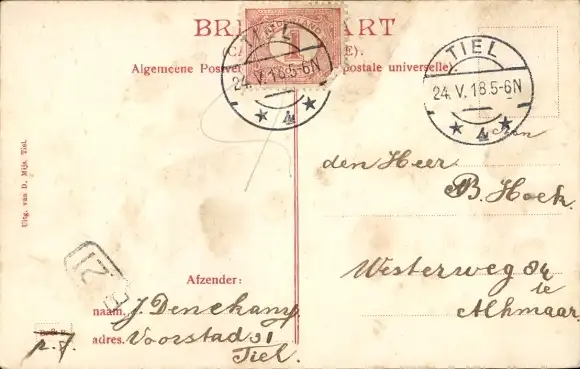 BRI ART
Algemeene Postve postale universelle)
1
TIEL
24. V. 18.5-6N
4
TIEL
24. V. 18.5-6N
4
den Heer
B. Hoek.
Westerweg 84
te
Alkmaar
Uitg. van D. Mijs, Tiel.
Afzender:
naam. J. Denekamp
adres. Voorstad 31
Tiel.
p.f.